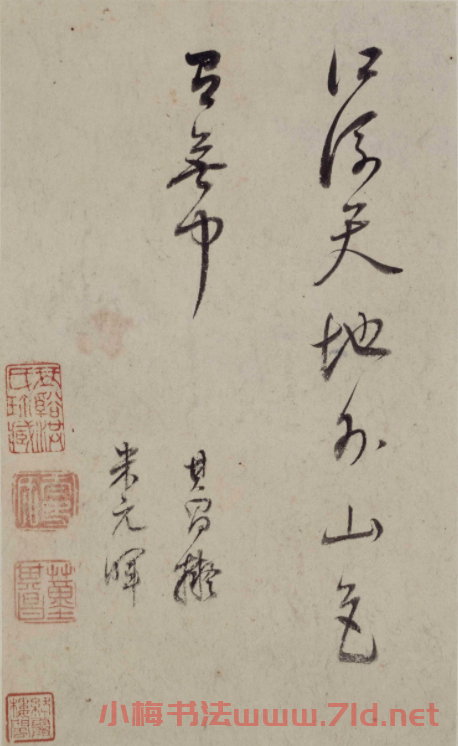 江流天地外山色
有無中
其昌擬
米元暉
董其昌
小梅书法www.7ld.net